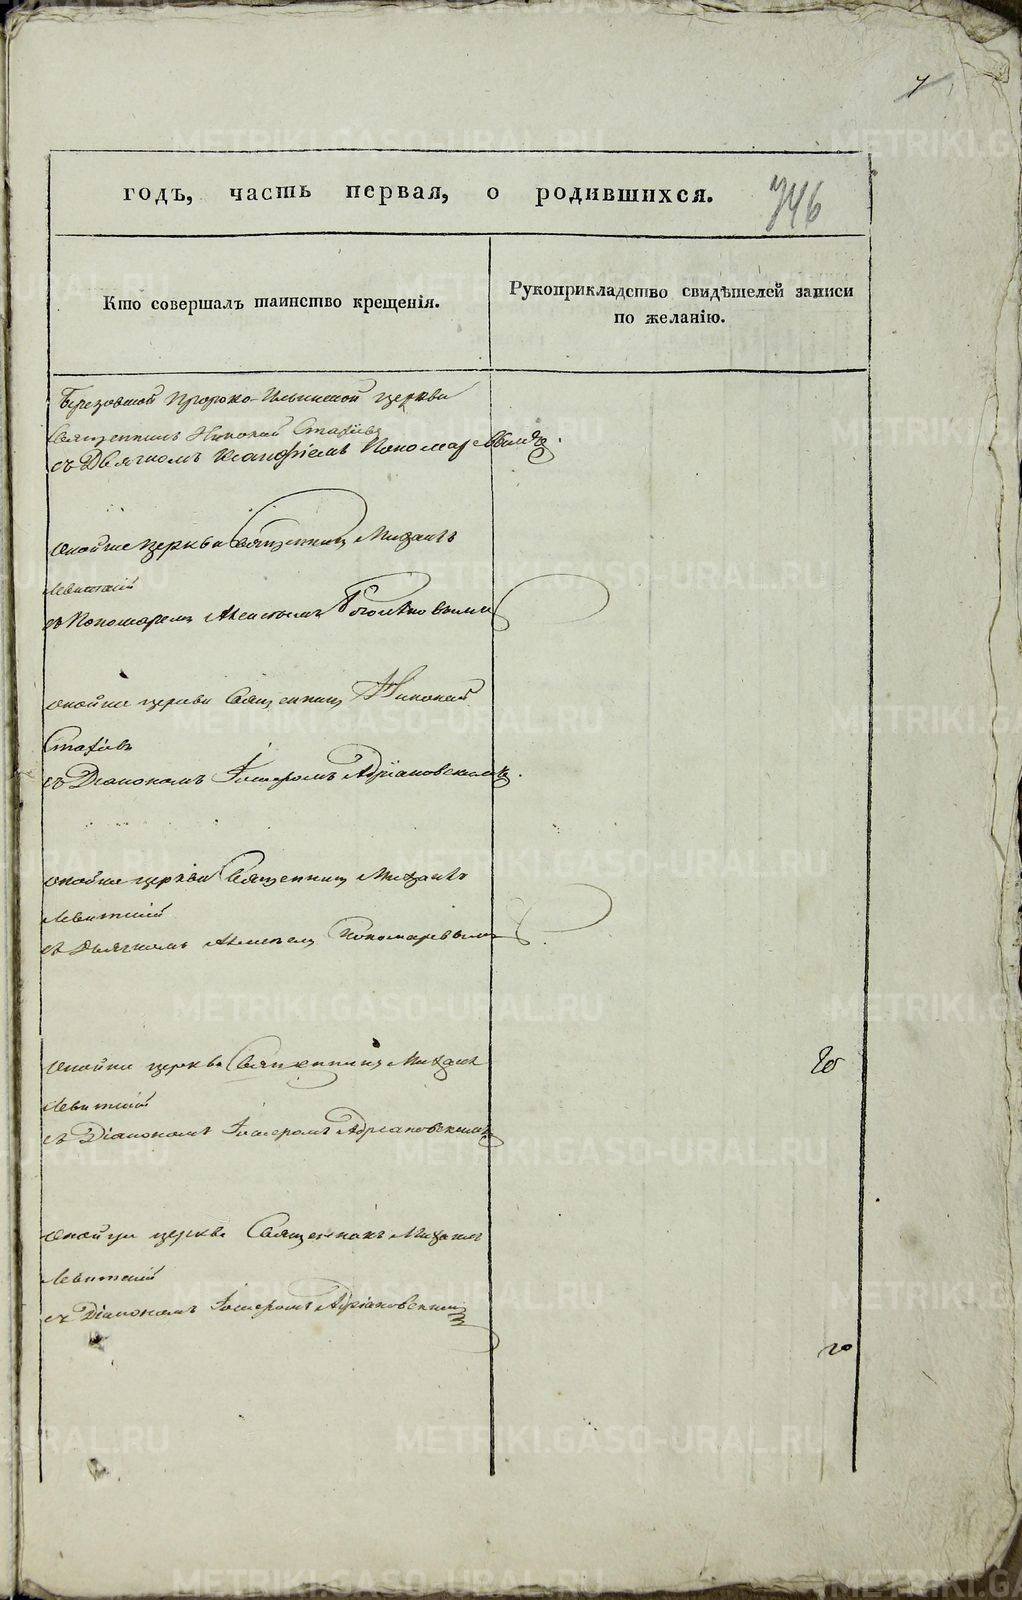 7
годъ, часть первая, о родившихся.
746
Кто совершалъ таинство крещенія.
Рукоприкладство свидѣтелей записи
по желанію.
Березовской Пророко-Ильинской церкви
Священникъ Николай Стахіевъ
съ Дьячкомъ Ксанфіемъ Пономаревымъ.
оной же церкви Священникъ Михаилъ
Левитскій
съ Пономаремъ Алексѣемъ Боголѣповымъ
оной же церкви Священникъ Николай
Стахіевъ
съ Діакономъ Адріановскимъ.
оной же церкви Священникъ Михаилъ
Левитскій
съ Дьячкомъ Пономаревымъ
оной же церкви Священникъ Михаилъ
Левитскій
съ Діакономъ Адріановскимъ
оной же церкви Священникъ Михаилъ
Левитскій
съ Діакономъ Адріановскимъ
METRIKI.GASO-URAL.RU